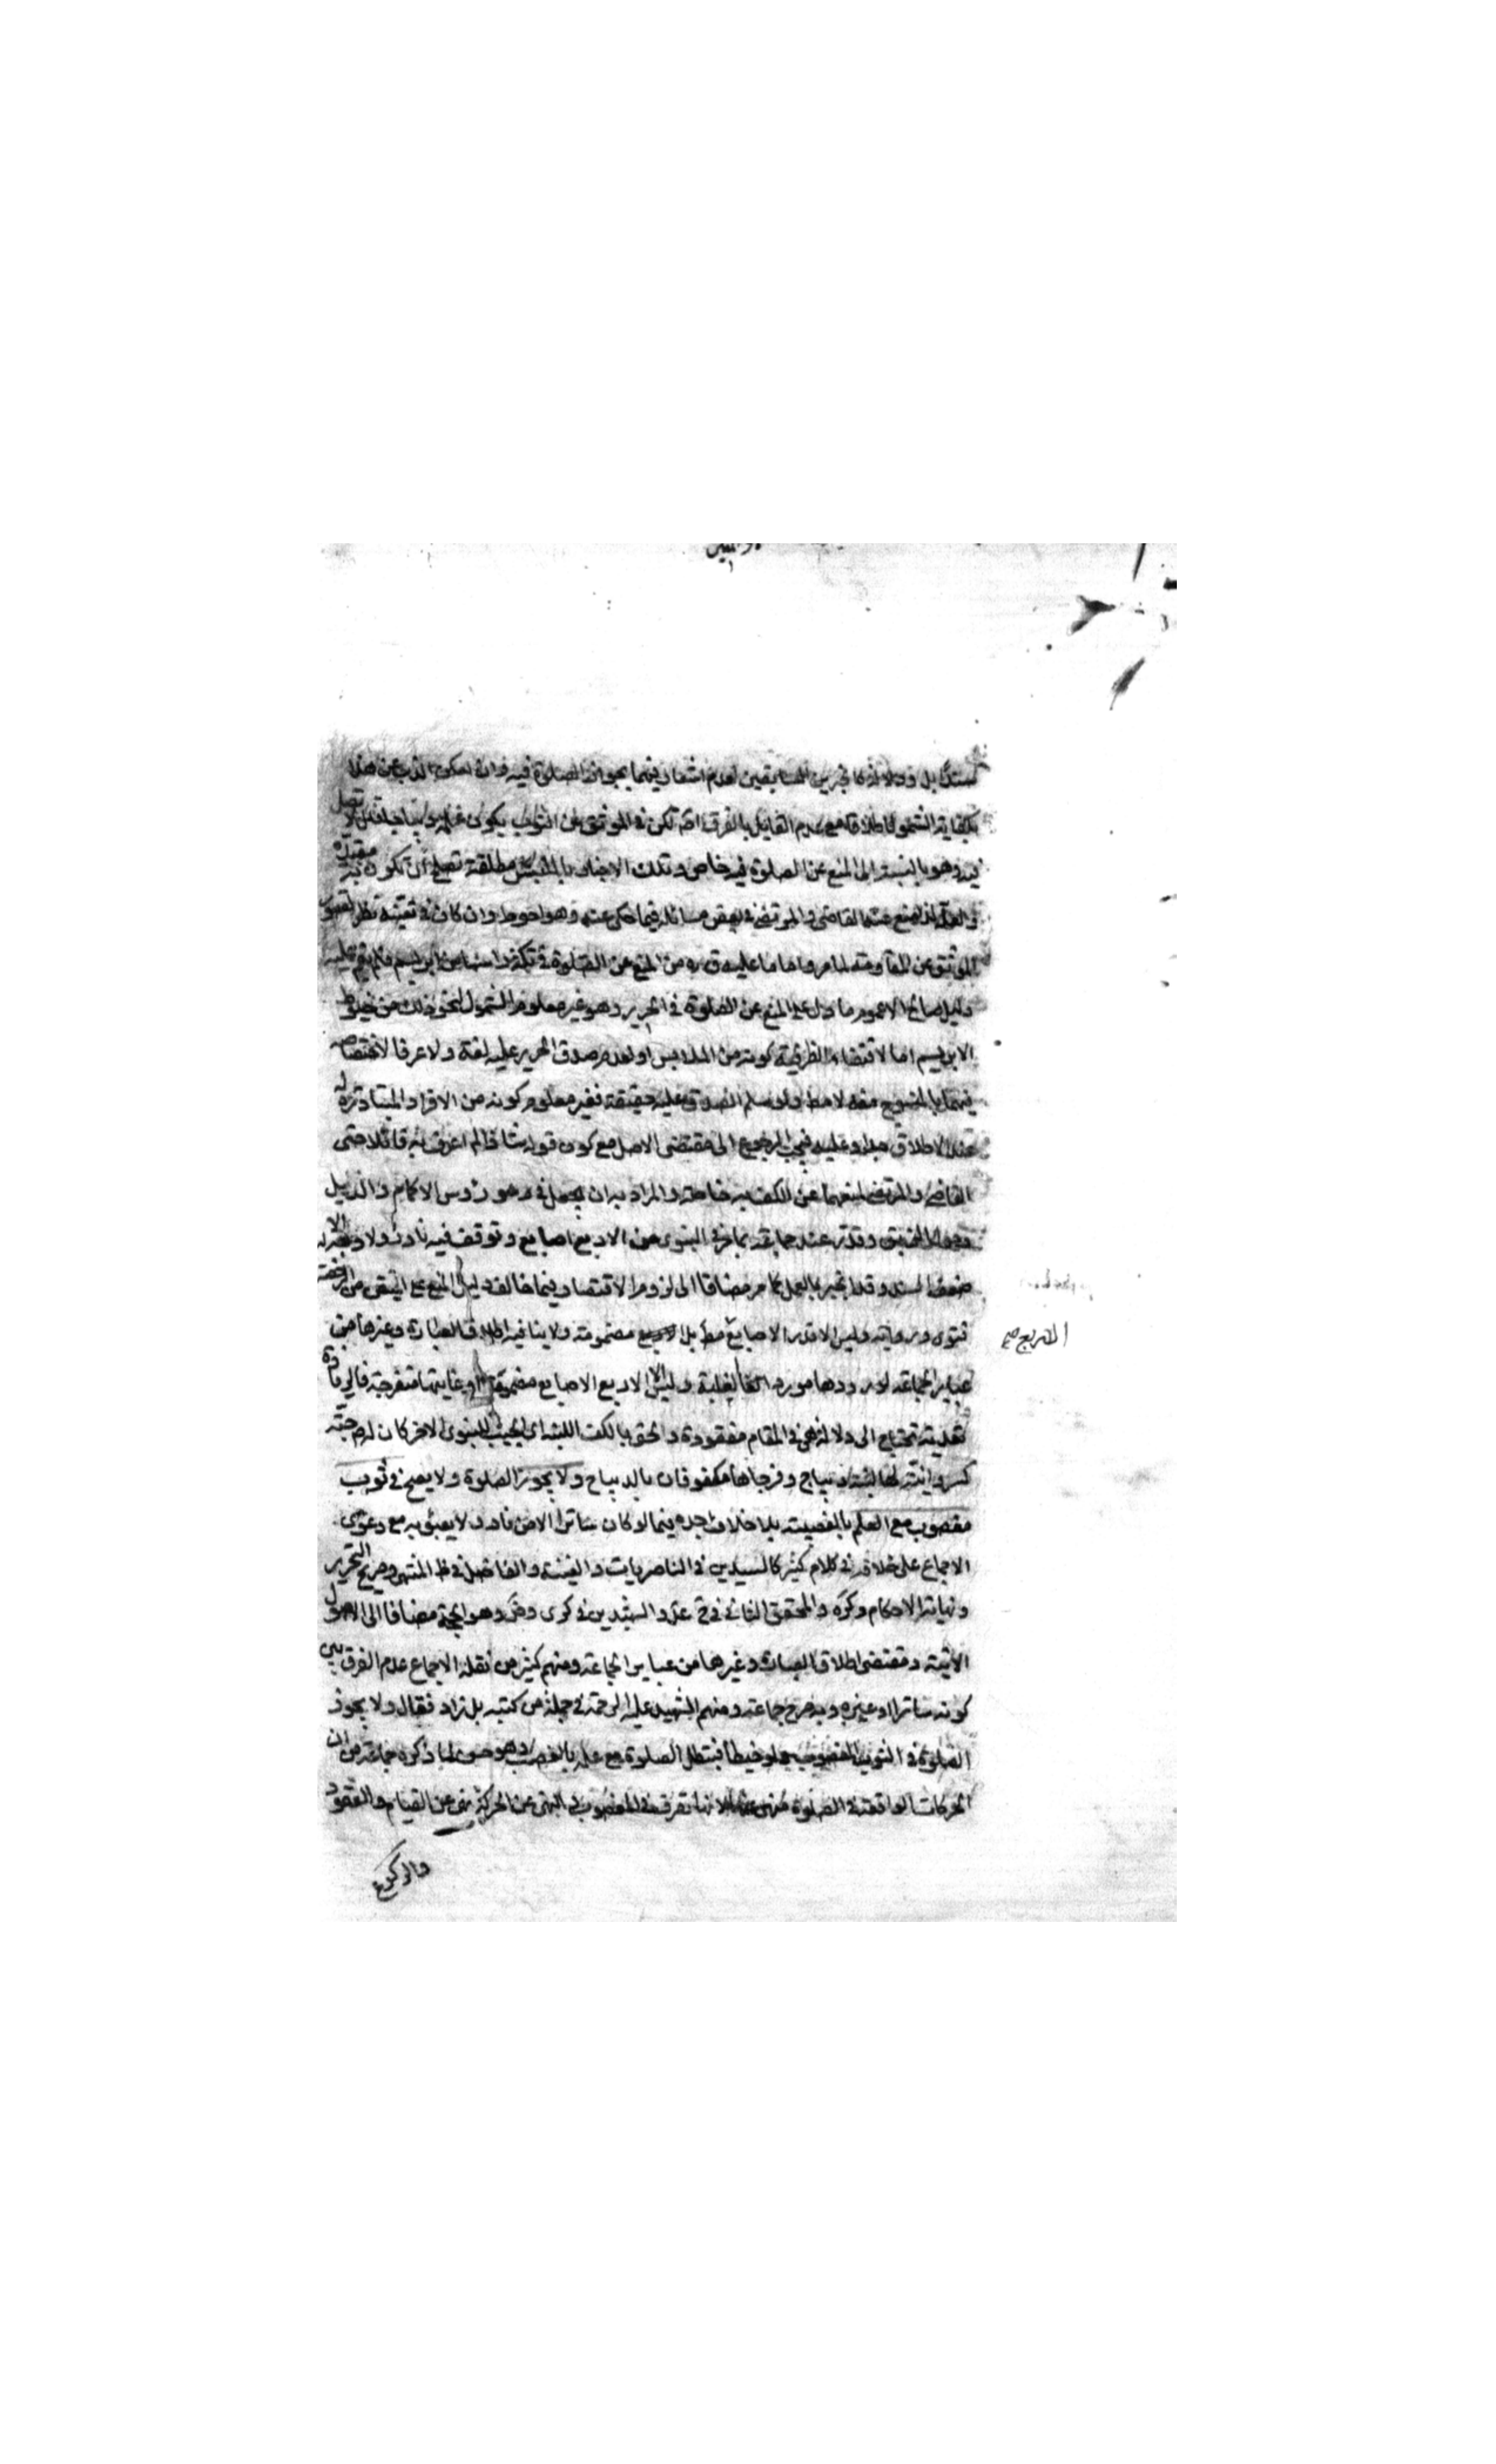 سندا بل ودلالة كالخبرين السابقين لعدم اشعار فيهما بجواز الصلوة فيه وان امكن الذب عن هذا
بكفاية الشمول اطلاقا مع عدم القايل بالفرق اصلا لكن في الموثق عن الثوب يكون علمه ديباجا قال لا تصل
فيه وهو بالنسبة الى المنع عن الصلوة فيه خاص وتلك الاخبار بالنسبة مطلقة تصلح ان تكون به مقيدة
ولعله لذا منع عنه القاضي والمرتضى في بعض مسائله فيما حكى عنه وهو احوط وان كان في تعينه نظر لقصور
الموثق عن المقاومة لما مر واما ما عليه من المنع عن الصلوة في تكة راسها من ابريسم فلم يقم عليه
دليل صالح الا عموم ما دل على المنع عن الصلوة في الحرير وهو غير معلوم الشمول لنحو ذلك من خيوط
الابريسم اما لاقتضاء الظرفية كونه من الملابس او لعدم صدق الحرير عليه لغة ولا عرفا لاختصاصه
فيهما بالمنسوج منه لا مط ولو سلم الصدق عليه حقيقة فغير معلوم كونه من الافراد المتبادرة له
عند الاطلاق عليه فيجب الرجوع الى مقتضى الاصل مع كون قوله شاذا لم اعرف به قائلا حتى
القاضي والمرتضى لمنعهما عن الكف به خاصة والمراد به ان يجعل في رؤس الاكمام والذيل
وحول الزيق وقدر عند جماعة بما في النبوي من الاربع اصابع وتوقف فيه نادر ولا وجه له الا
ضعف السند وقد انجبر بالعمل كما مر مضافا الى لزوم الاقتصار فيما خالف دليل المنع على المتيقن من الرخصة
فتوى ورواية وليس الا قدر الاصابع مط بل الاربع مضمومة ولا ينافيه اطلاق العبارة وغيرها من
الاربع صح
عباير الجماعة لورودها مورد الغلبة وليس الا الاربع الاصابع مضمومة او غايتها متفرجة فالزيادة
تعديته تحتاج الى دلالة هي في المقام مفقودة والحق بالكف اللبنة اي الجيب للنبوي الاخر كان له جبة
كسروانية لها لبنة ديباج وفرجاها مكفوفان بالديباج ولا يجوز الصلوة ولا يصح في ثوب
مغصوب مع العلم بالغصبية بلا خلاف اجده فيما لو كان ساترا الا من نادر ولا يعبؤ به مع دعوى
الاجماع على خلافه في كلام كثير كالسيدين في الناصريات والغنية والفاضل في ظ المنتهى وصريح التحرير
ونهاية الاحكام وكرة والمحقق الثاني في شرح عد والشهيدين في كرى وض وهو الحجة مضافا الى الاصول
الاتية ومقتضى اطلاق العبارة وغيرها من عباير الجماعة ومنهم كثير من نقلة الاجماع عدم الفرق بين
كونه ساترا او غيره وبه صرح جماعة ومنهم الشهيد عليه الرحمة في جملة من كتبه بل زاد فقال ولا يجوز
الصلوة في الثوب المغصوب ولو خيطا فتبطل الصلوة مع علمه بالغصب وهو حسن لما ذكره جماعة من ان
الحركات الواقعة في الصلوة منهي عنها لانها تصرف في المغصوب والنهي عن الحركة نهي عن القيام والقعود
والركوع